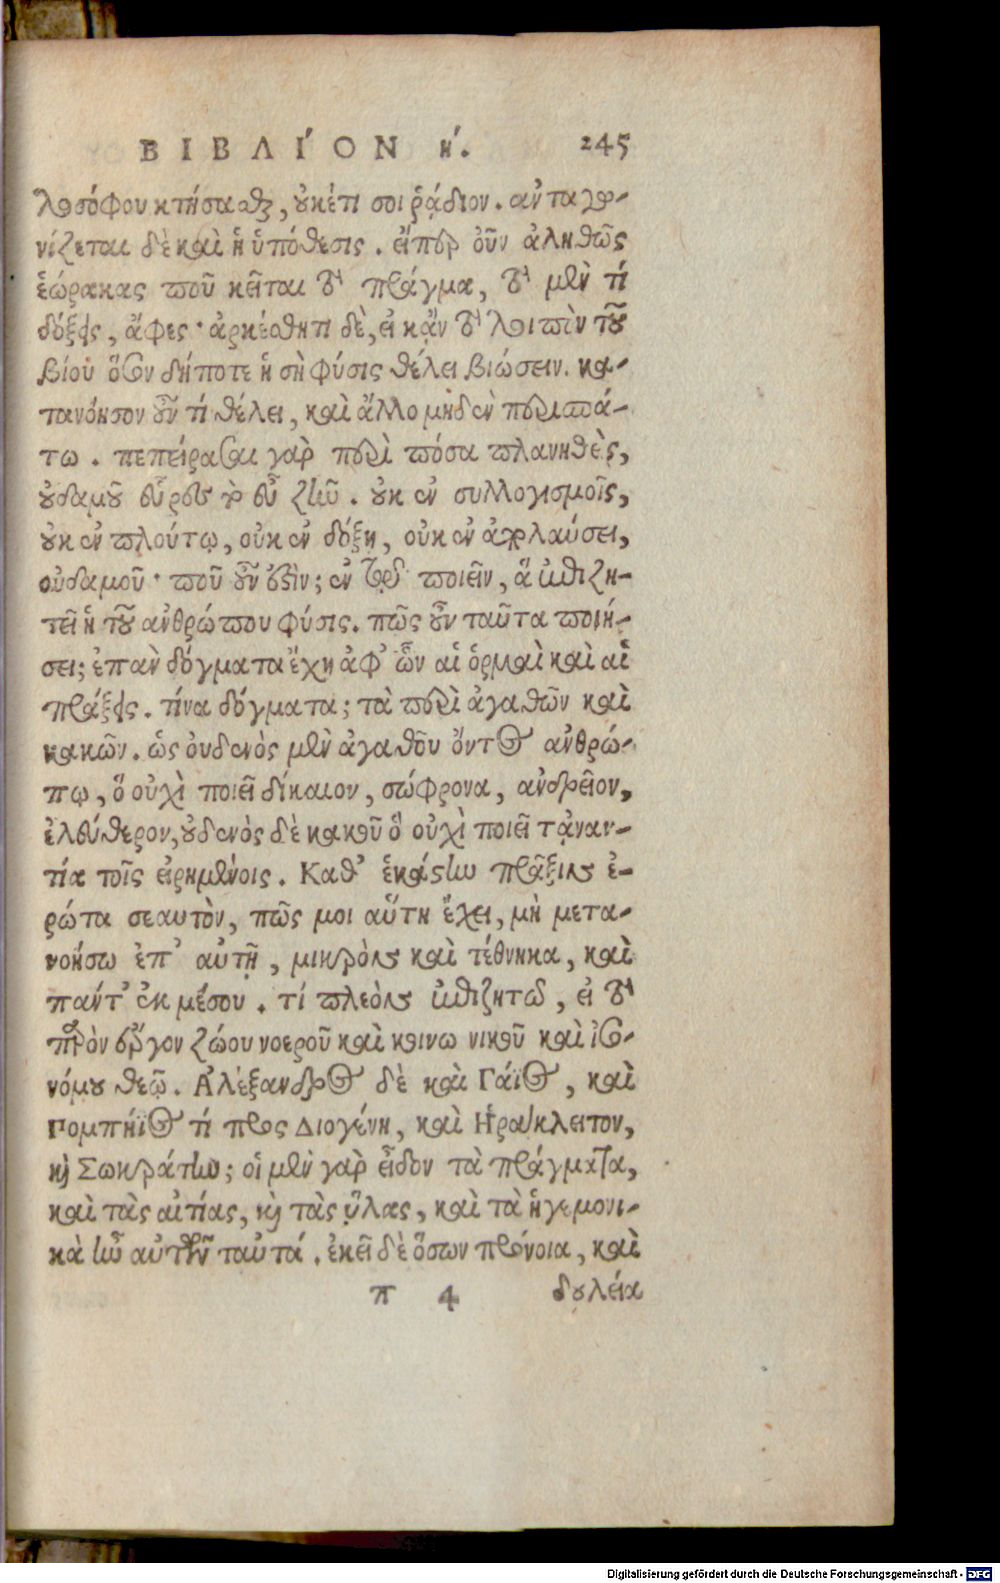 ΒΙΒΛΙ´ΟΝ η´. 245
λοσόφου κτήσασθαι, οὐκέτι σοι ῥᾴδιον. ἀνταγω-
νίζεται δὲ καὶ ἡ ὑπόθεσις. εἴπερ οὖν ἀληθῶς
ἑώρακας ποῦ κεῖται τὸ πρᾶγμα, τὸ μὲν τί
δόξεις, ἄφες· ἀρκέσθητι δὲ, εἰ κᾂν τὸ λοιπὸν τοῦ
βίου ὅσον δήποτε ἡ σὴ φύσις θέλει βιώσειν. κα-
τανόησον οὖν τί θέλει, καὶ ἄλλο μηδὲν περισπά-
τω. πεπείρασαι γὰρ περὶ πόσα πλανηθεὶς,
οὐδαμοῦ εὗρες τὸ εὖ ζῆν. οὐκ ἐν συλλογισμοῖς,
οὐκ ἐν πλούτῳ, οὐκ ἐν δόξῃ, οὐκ ἐν ἀπολαύσει,
οὐδαμοῦ· ποῦ οὖν ἐστὶν; ἐν τῷ ποιεῖν, ἃ ἐπιζη-
τεῖ ἡ τοῦ ἀνθρώπου φύσις. πῶς οὖν ταῦτα ποιή-
σει; ἐπὰν δόγματα ἔχῃ ἀφ' ὧν αἱ ὁρμαὶ καὶ αἱ
πράξεις. τίνα δόγματα; τὰ περὶ ἀγαθῶν καὶ
κακῶν. ὡς οὐδενὸς μὲν ἀγαθοῦ ὄντος ἀνθρώ-
πῳ, ὃ οὐχὶ ποιεῖ δίκαιον, σώφρονα, ἀνδρεῖον,
ἐλεύθερον, οὐδενὸς δὲ κακοῦ ὃ οὐχὶ ποιεῖ τἀναν-
τία τοῖς εἰρημένοις. Καθ' ἑκάστην πρᾶξιν ἐ-
ρώτα σεαυτὸν, πῶς μοι αὕτη ἔχει, μὴ μετα-
νοήσω ἐπ' αὐτῇ, μικρὸν καὶ τέθνηκα, καὶ
πάντ' ἐκ μέσου. τί πλέον ἐπιζητῶ, εἰ τὸ
παρὸν ἔργον ζώου νοεροῦ καὶ κοινω νικοῦ καὶ ἰσο-
νόμου θεῷ. Ἀλέξανδρος δὲ καὶ Γάϊος, καὶ
Πομπήϊος τί προς Διογένη, καὶ Ἡράκλειτον,
καὶ Σωκράτην; οἱ μὲν γὰρ εἶδον τὰ πράγματα,
καὶ τὰς αἰτίας, καὶ τὰς ὕλας, καὶ τὰ ἡγεμονι-
κὰ ἦν αὐτῶν ταὐτά. ἐκεῖ δὲ ὅσων πρόνοια, καὶ
π 4 δουλεία
Digitalisierung gefördert durch die Deutsche Forschungsgemeinschaft - DFG